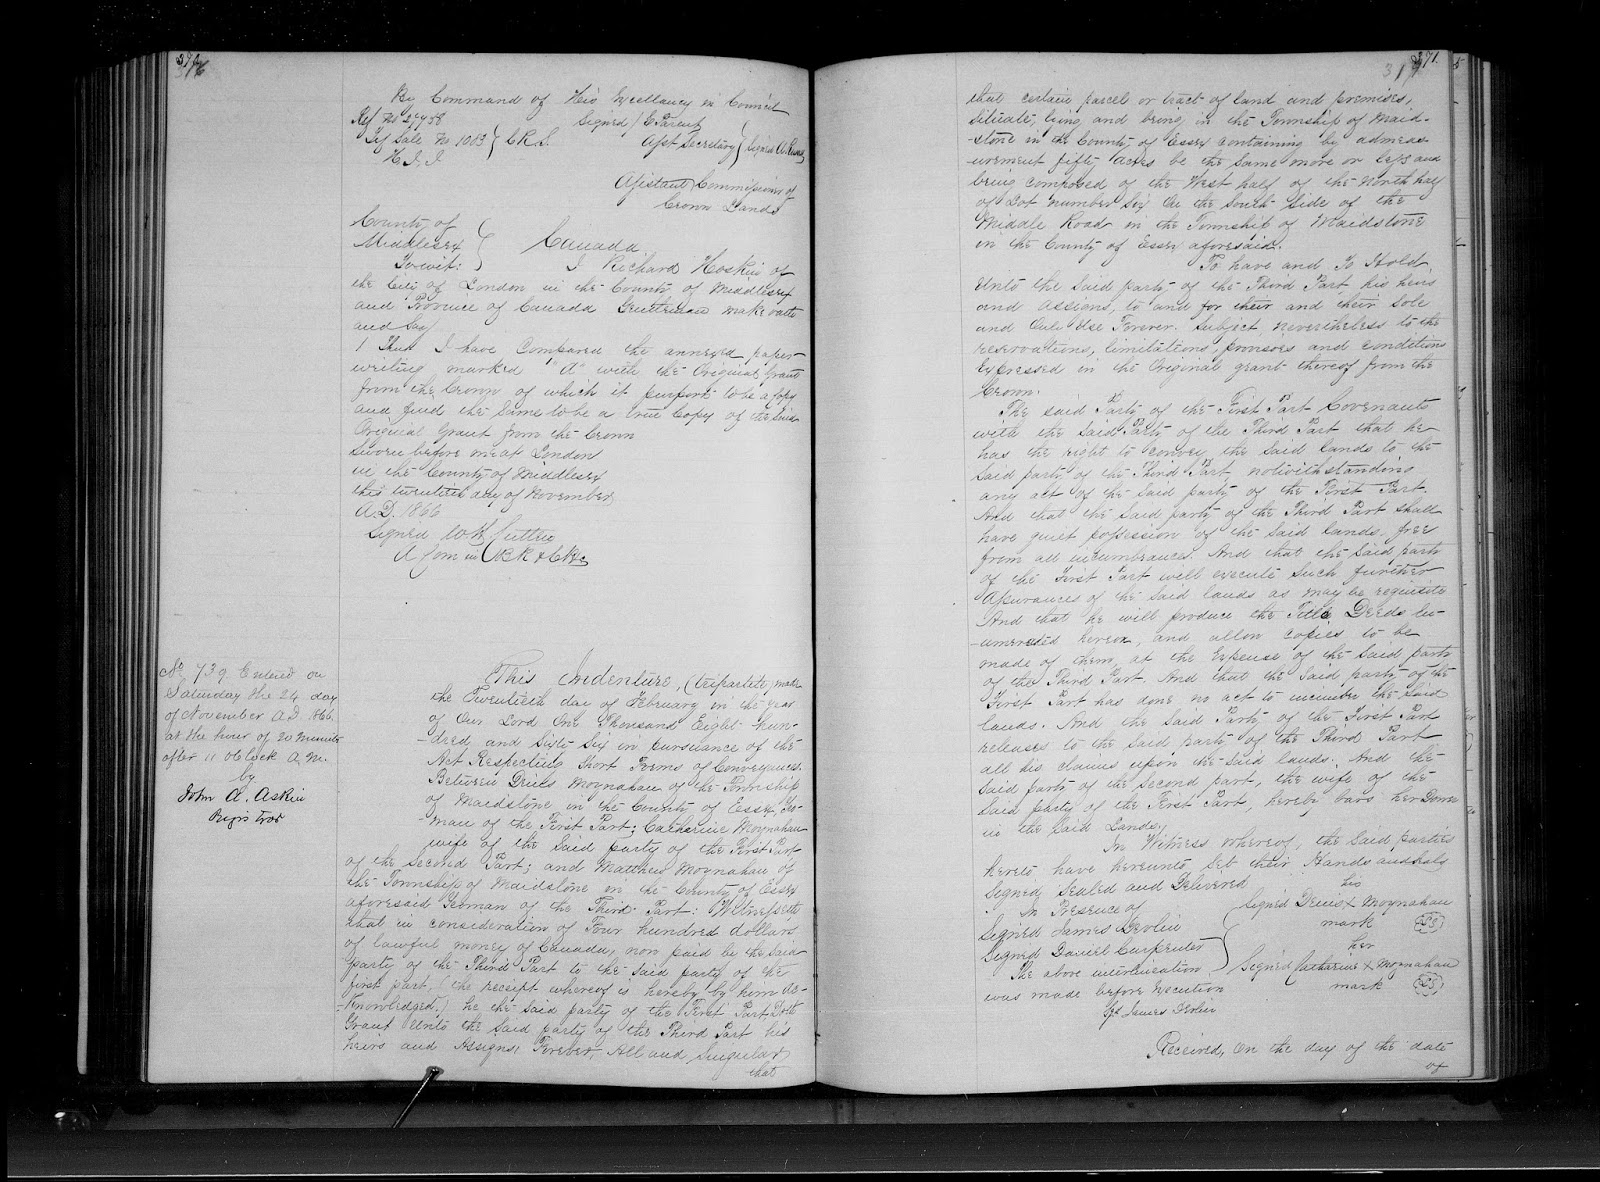 376
By Command of His Excellency in Council
Ref No 27758 Signed / E Parent
Sale No 1083 } C.R.S. Asst Secretary } Signed A Russell
H. J. J.
Assistant Commissioner of
Crown Lands
County of
Middlesex { Canada
To wit: I Richard Hoskin of
the City of London in the County of Middlesex
and Province of Canada Gentleman make oath
and Say
1 That I have Compared the annexed paper
writing marked "A" with the Original Grant
from the Crown of which it purports to be a Copy
and find the Same to be a true Copy of the Said
Original Grant from the Crown
Sworn before me at London
in the County of Middlesex
this twentieth day of November
A.D. 1866
Signed
A Com in B R &c
No 739 Entered on
Saturday the 24 day
of November A.D. 1866
at the hour of 20 Minutes
after 11 oClock A.M.
by
John A. Askin
Registrar
This Indenture, (tripartite) made
the Twentieth day of February in the Year
of Our Lord One Thousand Eight hun-
-dred and Sixty Six in pursuance of the
Act Respecting Short Forms of Conveyances.
Between Denis Moynahan of the Township
of Maidstone in the County of Essex, Yeo-
-man of the First Part; Catherine Moynahan
wife of the Said party of the First Part
of the Second Part; and Matthew Moynahan of
the Township of Maidstone in the County of Essex
aforesaid Yeoman of the Third Part: Witnesseth
that in consideration of Four hundred dollars
of lawful money of Canada, now paid by the Said
party of the Third Part to the Said party of the
first part, (the receipt whereof is hereby by him Ac-
-knowledged,) he the Said party of the First Part Doth
Grant Unto the Said party of the Third Part his
heirs and Assigns, Forever, All and Singular
that
371
317
that certain parcel or tract of land and premises,
Situate, lying and being, in the Township of Maid-
stone in the County of Essex containing by admeas
urement fifty acres be the Same more or less and
being composed of the West half of the North half
of Lot Number Six On the South Side of the
Middle Road in the Township of Maidstone
in the County of Essex aforesaid.
To have and To Hold
Unto the Said party of the Third Part his heirs
and assigns, to and for their and their Sole
and Only Use Forever. Subject nevertheless to the
reservations, limitations, provisoes and conditions
Expressed in the Original grant thereof from the
Crown.
The said Party of the First Part Covenants
with the Said Party of the Third Part that he
has the right to convey the Said lands to the
Said party of the Third Part, notwithstanding
any act of the Said party of the First Part.
And that the Said party of the Third Part Shall
have quiet possession of the Said lands. free
from all incumbrances. And that the Said party
of the First Part will execute Such further
Assurances of the Said lands as may be requisite
And that he will produce the Title Deeds En-
-umerated hereon, and allow copies to be
made of them, at the Expense of the Said party
of the Third Part. And that the Said party of the
First Part has done no act to incumber the Said
lands. And the Said Party of the First Part
releases to the Said party of the Third Part
all his claims upon the Said lands. And the
Said party of the Second part, the wife of the
Said party of the First Part, hereby bars her Dower
in the Said Lands.
In Witness whereof, the Said parties
hereto have hereunto Set their Hands and Seals
Signed Sealed and Delivered his
In Presence of Signed Denis X Moynahan
Signed James Devlin mark (LS)
Signed Daniel Carpenter her
The above interlineation Signed Catharine X Moynahan
was made before Execution mark (LS)
Sgd James Devlin
Received, On the day of the date
of